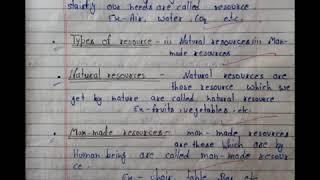 staisfy our needs are called resource
Ex- Air, water, CO2 etc.
Types of resource - (i) Natural resources (ii) Man-
made resources
Natural resources - Natural resources are
those resource which we
get by nature are called natural resource
Ex- fruits, vegetables, etc.
Man-made resources- man-made resources
are those which are by
Human being are called man-made resour
ce.
Ex - chair, table, etc